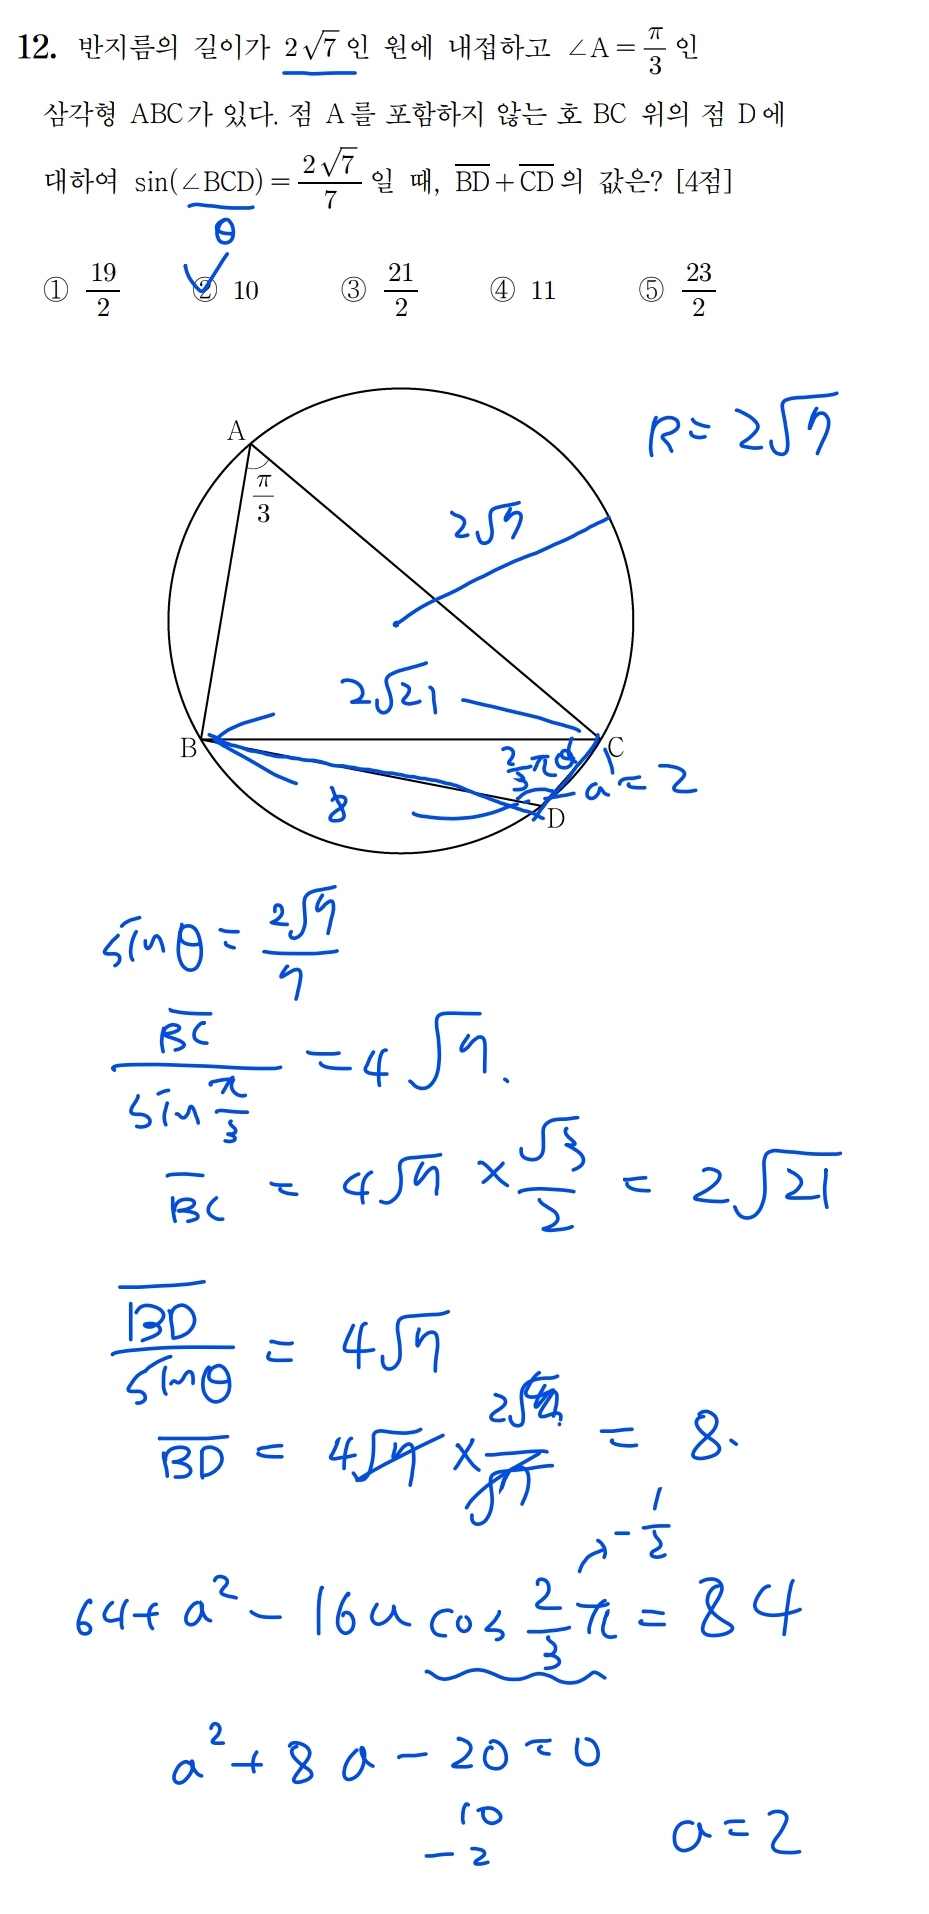 12. 반지름의 길이가 2√7인 원에 내접하고 ∠A = π/3 인
삼각형 ABC가 있다. 점 A를 포함하지 않는 호 BC 위의 점 D에
대하여 sin(∠BCD) = 2√7/7 일 때, BD + CD의 값은? [4점]
θ
① 19/2 ② 10 ③ 21/2 ④ 11 ⑤ 23/2
R = 2√7
A
π/3
2√7
2√21
B
C
2/3 π θ
a = 2
8
D
sinθ = 2√7/7
BC/sin π/3 = 4√7.
BC = 4√7 × √3/2 = 2√21
BD/sinθ = 4√7
BD = 4√7 × 2/√7 = 8.
-1/2
64 + a² - 16a cos 2/3 π = 84
a² + 8a - 20 = 0
10
-2
a = 2